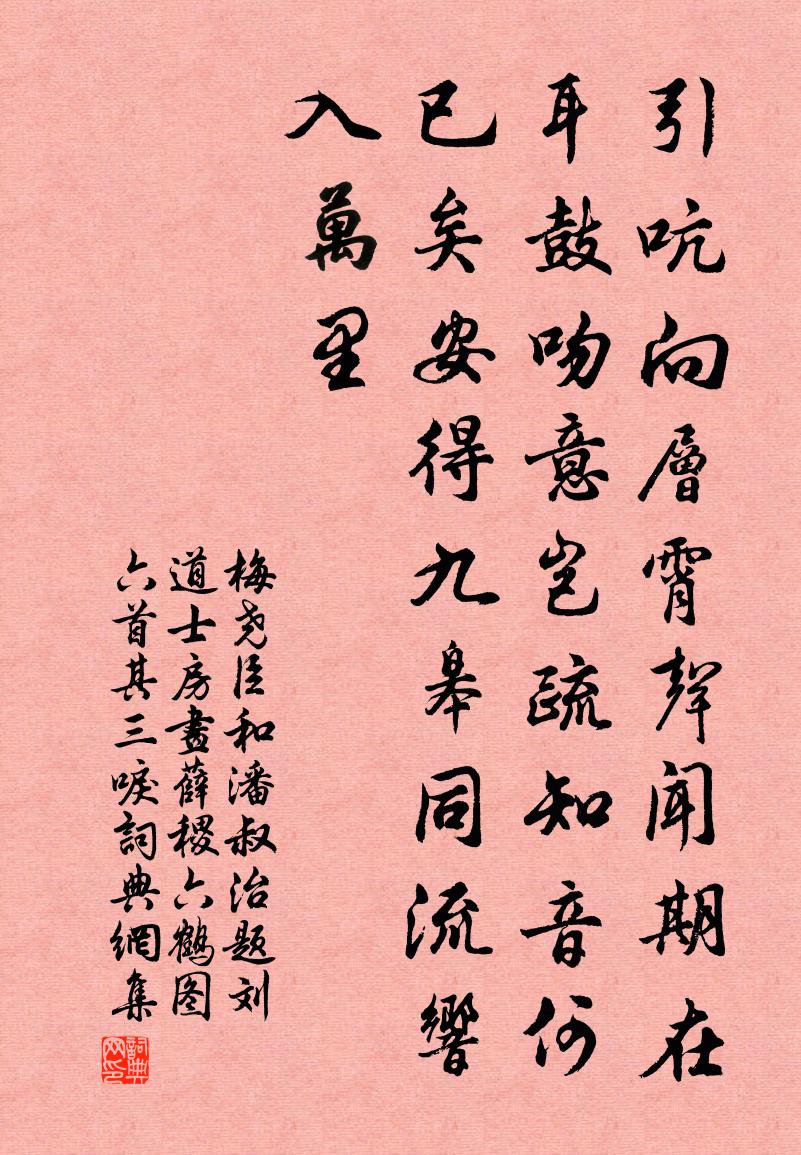 引吭向層霄聲聞期在
耳鼓吻意岂疏知音何
已矣安得九皋同流響
入萬里
梅尧臣和潘叔治题刘
道士房畫薛稷六鶴图
六首其三唳詞典網集
詞典
网印